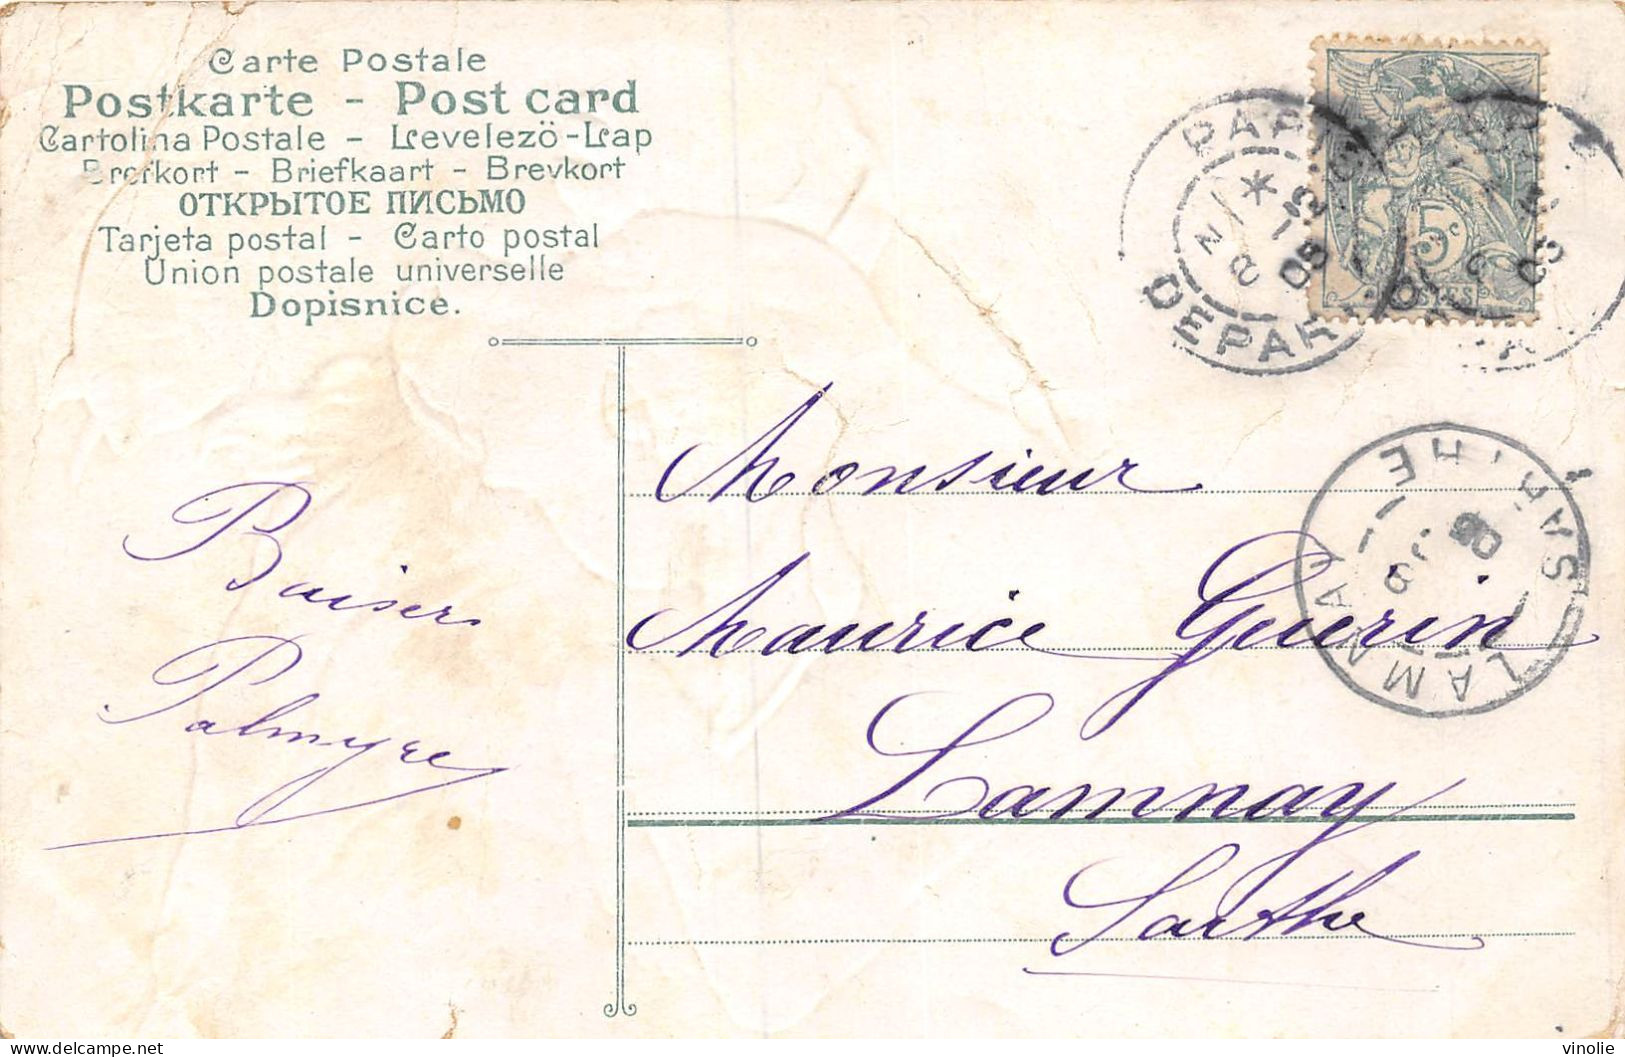 Carte Postale
Postkarte - Post card
Cartolina Postale - Levelezö-Lap
Brefkort - Briefkaart - Brevkort
ОТКРЫТОЕ ПИСЬМО
Tarjeta postal - Carto postal
Union postale universelle
Dopisnice.
5c
POSTES
DEPART
Monsieur
Maurice Guerin
Lamnay
Sarthe
Baiser
Palmyre
LAMNAY
SARTHE
delcampe.net
vinolie